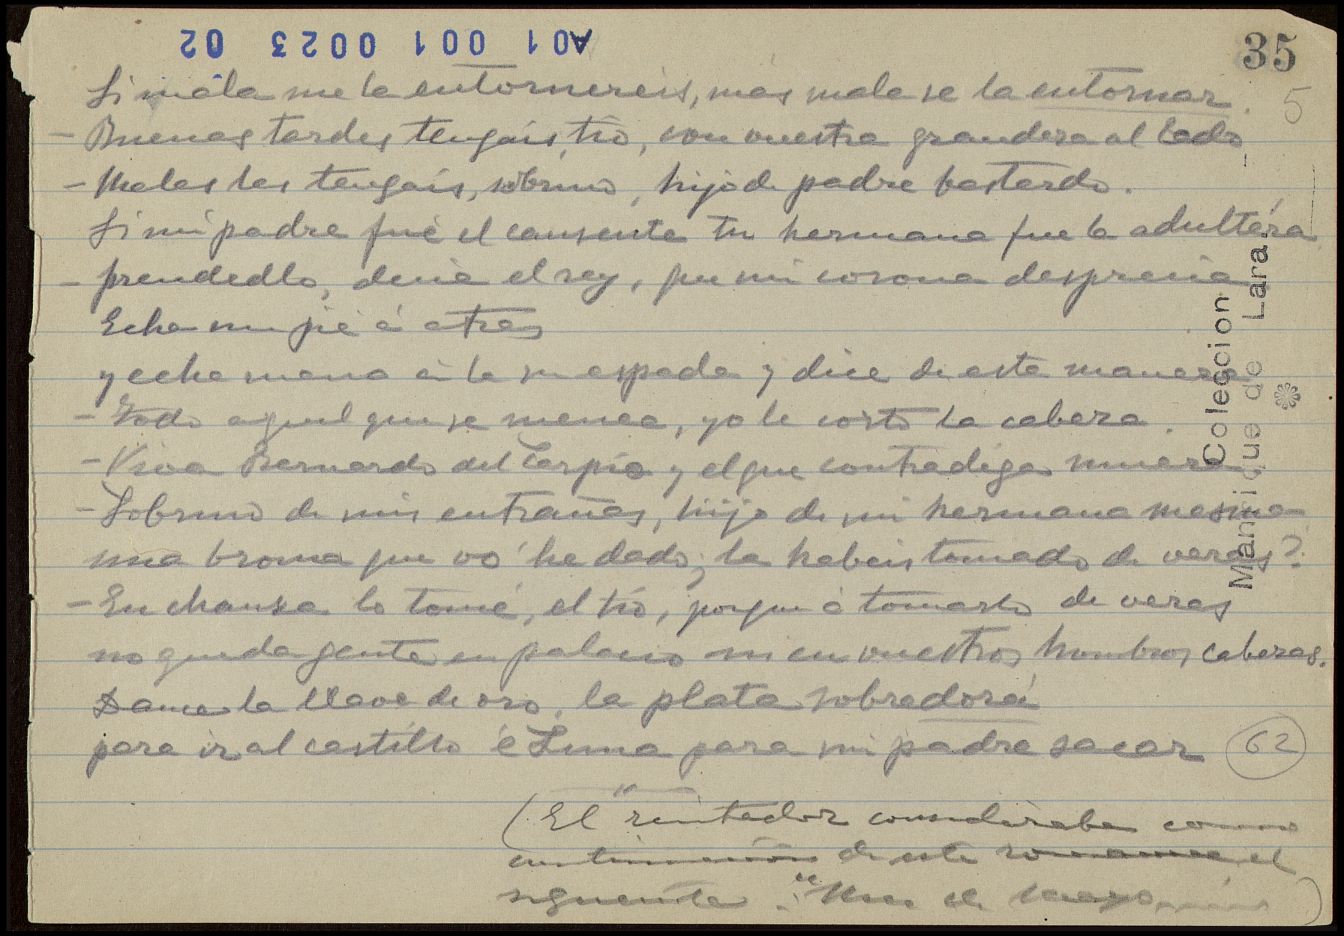 A01 001 0023 02
35
5
Si mala me la entornereis, más mala se la entornar.
- Buenas tardes tengais, tío, con vuestra grandeza al lado
- Malas las tengais, sobrino, hijo de padre bastardo.
Si mi padre fué el causante tu hermana fue la adultéra
- prendedlo, decia el rey, que mi corona desprecia
Echa un pié á atras
y echa mano á la su espada y dice de esta manera
- Todo aquel que se menea, yo le corto la cabeza.
- Viva Bernardo del Carpio y el que contradiga muera
- Sobrino de mis entrañas, hijo de mi hermana mesma
una broma que os he dado, la habeis tomado de veras?
- En chanza lo tomé, el tío, porque á tomarlo de veras
no queda gente en palacio ni en vuestros hombros cabezas.
Dame la llave de oro, la plata sobredorá
para ir al castillo é Luna para mi padre sacar
62
(El recitador consideraba como
continuación de este romance el
siguiente: "Mes de Mayo
Coleccion
Manrique de Lara.